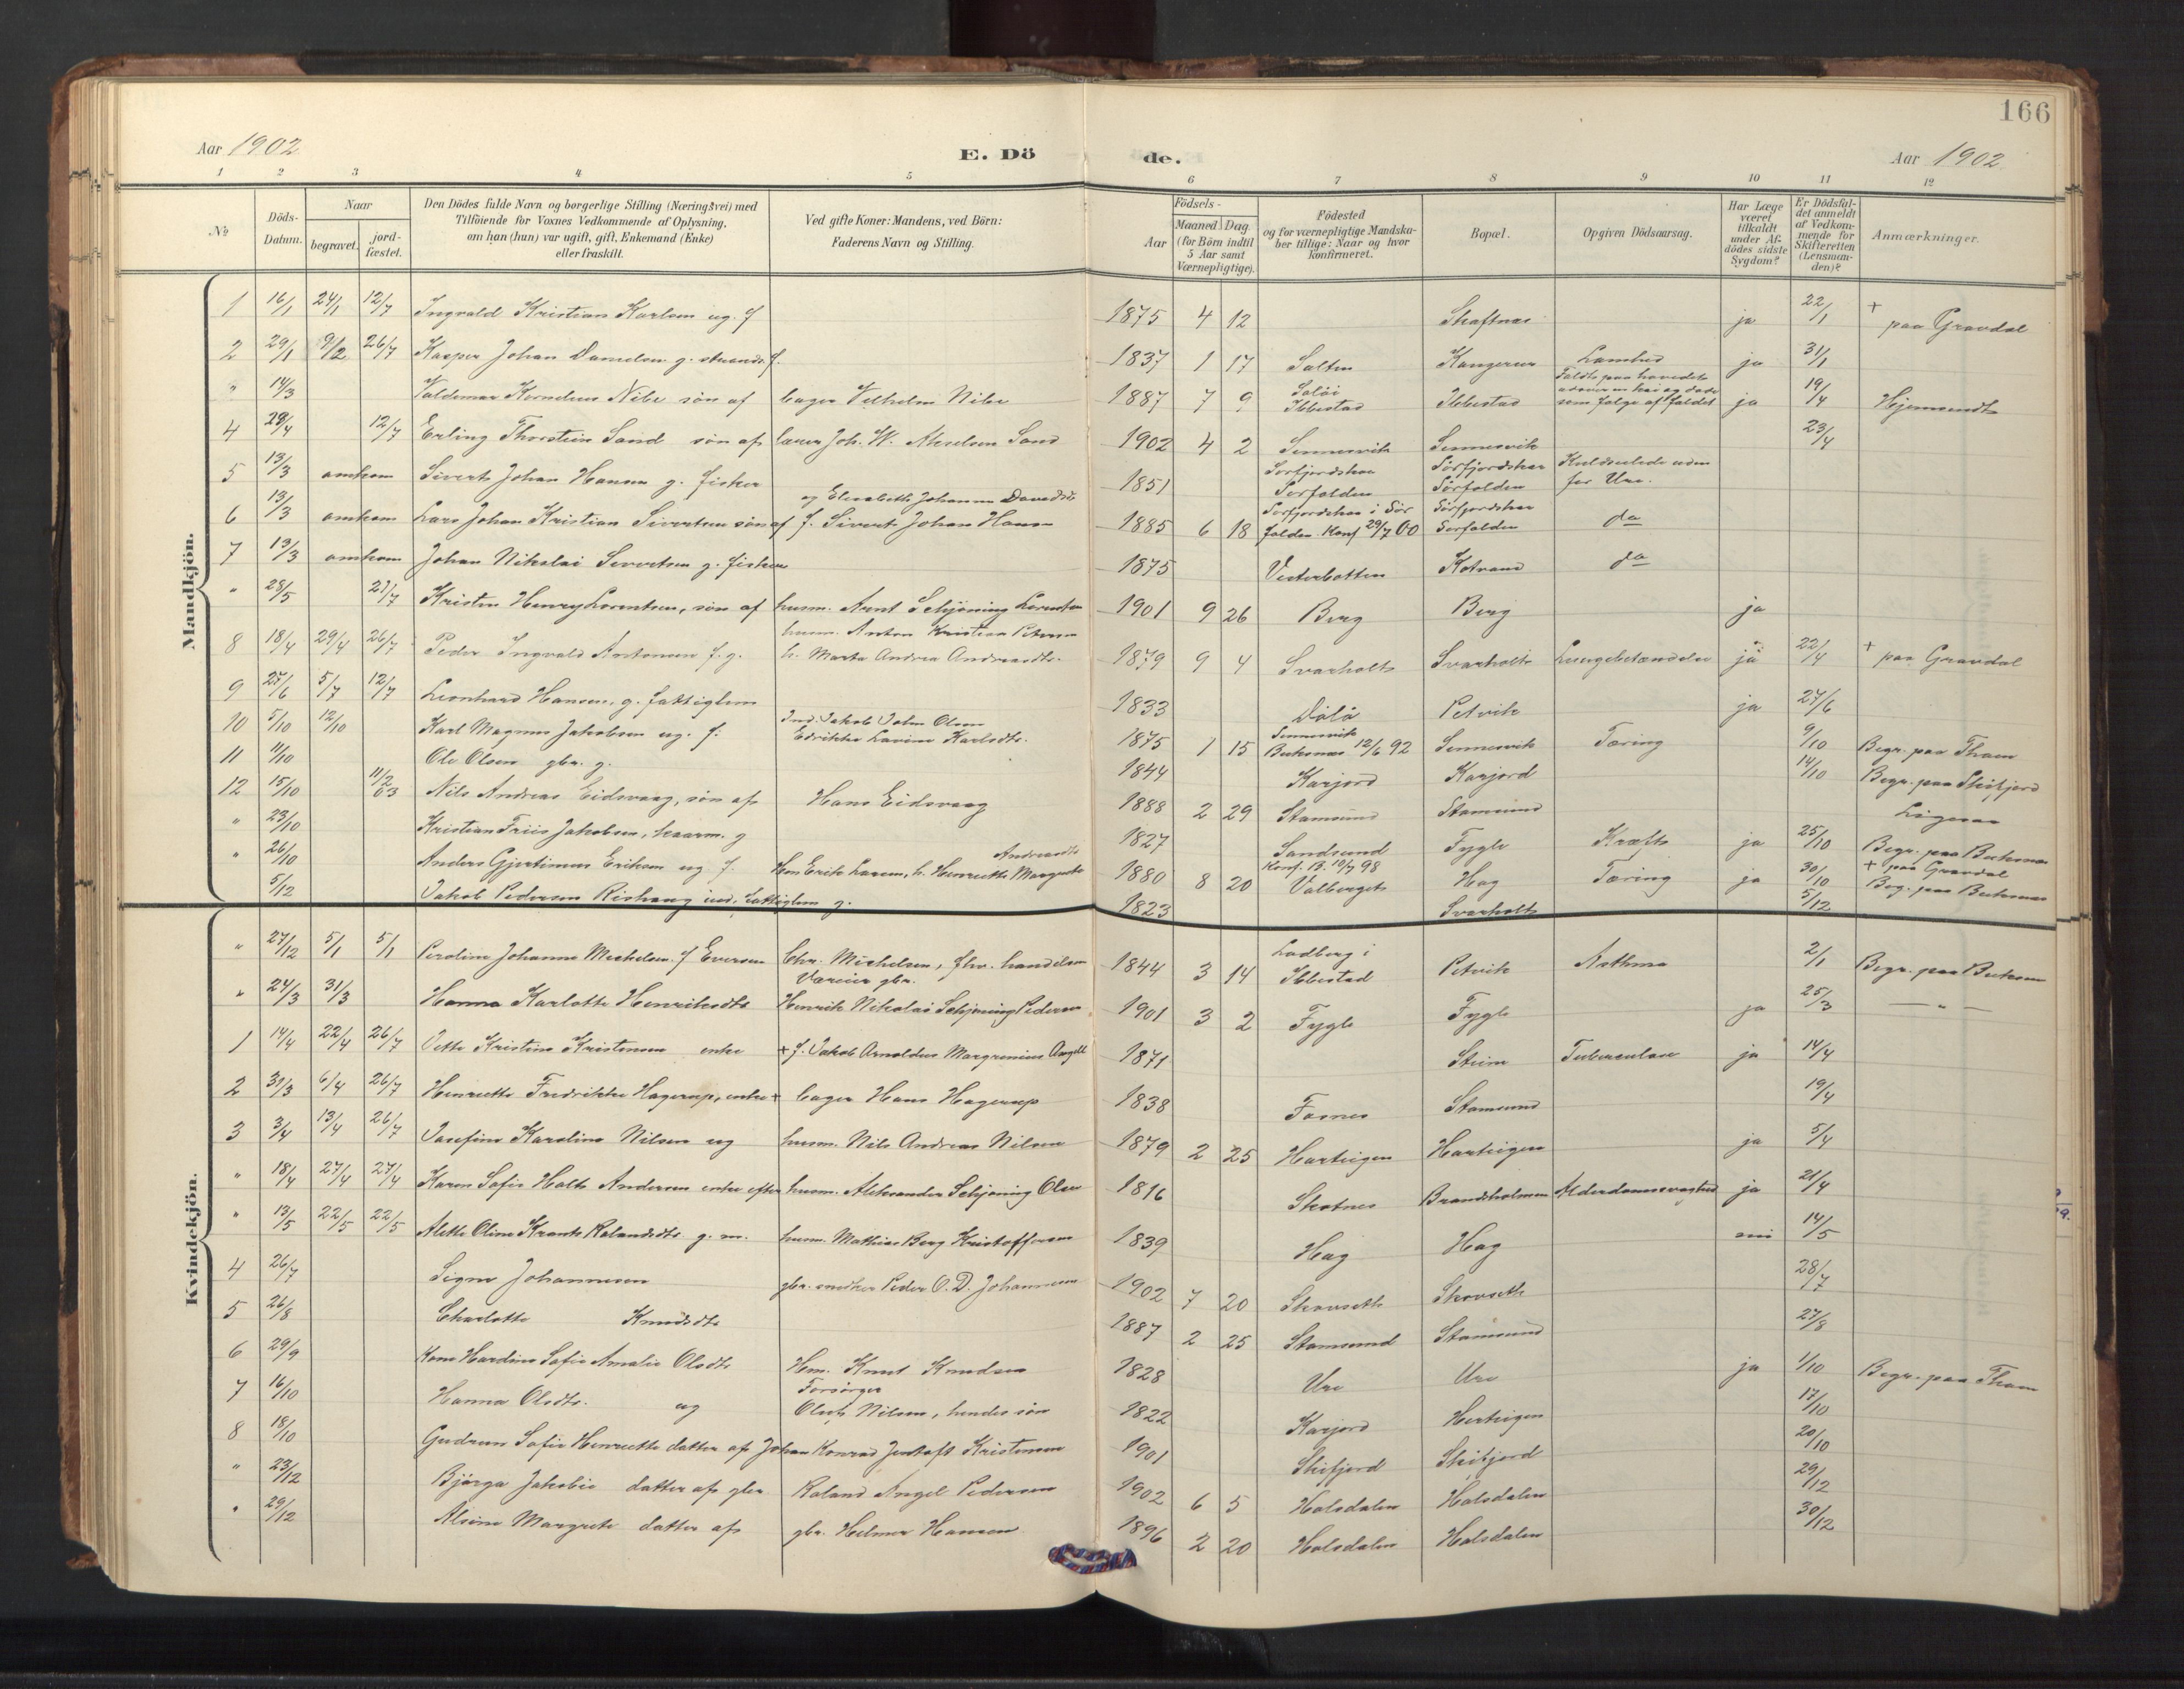 166
Aar 1902 E. Dö de. Aar 1902
1 2 3 4 5 6 7 8 9 10 11 12
№ Döds-Datum. Naar begravet. jord-fæstet. Den Dödes fulde Navn og borgerlige Stilling (Næringsvei) med Tilföiende for Voxnes Vedkommende af Oplysning, om han (hun) var ugift, gift, Enkemand (Enke) eller fraskilt. Ved gifte Koner: Mandens, ved Börn: Faderens Navn og Stilling. Födsels- Aar Maaned Dag (for Börn indtil 5 Aar samt Værnepligtige). Födested og for værnepligtige Mandska-ber tillige: Naar og hvor konfirmeret. Bopæl. Opgiven Dödsaarsag. Har Læge været tilkaldt under Af-dödes sidste Sygdom? Er Dödsfal-det anmeldt af Vedkom-mende for Skifteretten (Lensman-den)? Anmærkninger.
Mandkjön.
1 16/1 24/1 12/7 Ingvald Kristian Karlsen ug. f 1875 4 12 Skaftnes ja 22/1 + paa Gravdal
2 29/1 9/2 26/7 Kasper Johan Danielsen g. strands. f. 1837 1 17 Salten Kangerur Lamhed ja 31/1
" 14/3 Valdemar Kornelius Nibe søn af bager Vilhelm Nibe 1887 7 9 Ibbestad Ibbestad Faldt paa hovedet som følge af faldet ja 19/4 Hjemsendt
4 28/4 12/7 Erling Thorstein Sand søn af lærer Joh. W. Akselsen Sand 1902 4 2 Sennesvik Sennesvik 23/4
5 13/3 omkom Sivert Johan Hansen g. fisker 1851 Sørfolden Sørfolden Kuldseilede uden for Ure.
6 13/3 omkom Lars Johan Kristian Sivertsen søn af f. Sivert Johan Hansen og Elisabeth Johanna Davidsdt 1885 6 18 Sørfjordskar i Sør folden. Konf 29/7 00 Sørfjordskar Sørfolden do
7 13/3 omkom Johan Nikolai Sivertsen g. fisker 1875 Vesterbotten Kotvand do
" 28/5 27/7 Kristen Henry Lorentsen, søn af husm. Arnt Schjøning Lorentsen 1901 9 26 Berg Berg ja
8 18/4 29/4 26/7 Peder Ingvald Antonsen f. g. husm. Anton Kristian Petersen h. Marta Andrea Andreasdtr. 1879 9 4 Svarholt Svarholt Lungebetændelse ja 22/4 + paa Gravdal
9 27/6 5/7 12/7 Leonhard Hansen, g. fattiglem 1833 Petvik ja 27/6
10 5/10 12/10 Karl Magnus Jakobsen ug. f. Ind. Jakob John Olsen Edrikke Lavine Karlsdtr. 1875 1 15 Sennesvik Buksnes 12/6 92 Sennesvik Tæring 9/10 Begr. paa Tham
11 11/10 Ole Olsen gbr. g. 1844 Karjord Karjord 14/10 Begr. paa Skifjord
12 15/10 11/2 03 Nils Andreas Eidsvaag, søn af Hans Eidsvaag 1888 2 29 Stamsund Stamsund
" 23/10 Kristian Friis Jakobsen, kaarm. g 1827 Sandsund Fygle Kræft ja 25/10 Begr. paa Buksnes
" 26/10 Anders Gjertinius Eriksen ug f. Hm Erik Larsen, h. Henriette Margrete Andreasdt 1880 8 20 Konf. B. 10/7 98 Valberget Hag Tæring ja 30/10 + paa Gravdal Beg. paa Buksnes
5/12 Jakob Pedersen Rishaug ind. fattiglem g. 1823 Svarholt 5/12
Kvindekjön.
" 27/12 5/1 5/1 Peroline Johanna Mickelsen f Eversen Chr. Mickelsen, fhv. handelsm 1844 3 14 Ladberg i Ibbestad Petvik Asthma 2/1 Begr. paa Buksnes
" 24/3 31/3 Hanna Karlotte Henriksdtr Henrik Nikolai Schjøning Pedersen 1901 3 2 Fygle Fygle ja 25/3 — " —
1 14/4 22/4 26/7 Jette Kristine Kristensen enke + f. Jakob Arnoldus Margrenius Angell 1871 Steine Tuberculose ja 14/4
2 31/3 6/4 26/7 Henriette Fredrikke Hagerup, enke + bager Hans Hagerup 1838 Fosnes Stamsund 19/4
3 3/4 13/4 26/7 Josefine Karoline Nilsen ug husm. Nils Andreas Nilsen 1879 2 25 Hartvigen Hartvigen ja 5/4
" 18/4 27/4 27/4 Karen Sofie Holt Andersen enke efter husm. Aleksander Schjøning Olsen 1816 Skotnes Brandsholmen Alderdomssvaghed ja 21/4
" 13/5 22/5 22/5 Alette Oline Krantz Rolandsdtr g. m. husm. Mathias Berg Kristoffersen 1839 Hag Hag nei 14/5
4 26/7 Signe Johannesen gbr. snedker Peder O. D. Johannesen 1902 7 20 Skovseth Skovseth 28/7
5 26/8 Charlotte Knudsdtr 1887 2 25 Stamsund Stamsund 27/8
6 29/9 Kone Hardine Sofie Amalie Olsdtr Hm. Knut Knudsen 1828 Ure Ure ja 1/10 Begr. paa Tham
7 16/10 Hanna Olsdtr. ug Forsørger Oluf Nilsen, hendes søn 1822 Karjord Hertvigen 17/10
8 18/10 Gudrun Sofie Henriette datter af Johan Konrad Jentoft Kristensen 1901 Skifjord Skifjord 20/10
" 23/12 Bjørga Jakobie datter af gbr Roland Angel Pedersen 1902 6 5 Holsdalen Holsdalen 29/12
" 29/12 Alsine Margrete datter af gbr. Helmer Hansen 1896 2 20 Holsdalen Holsdalen 30/12